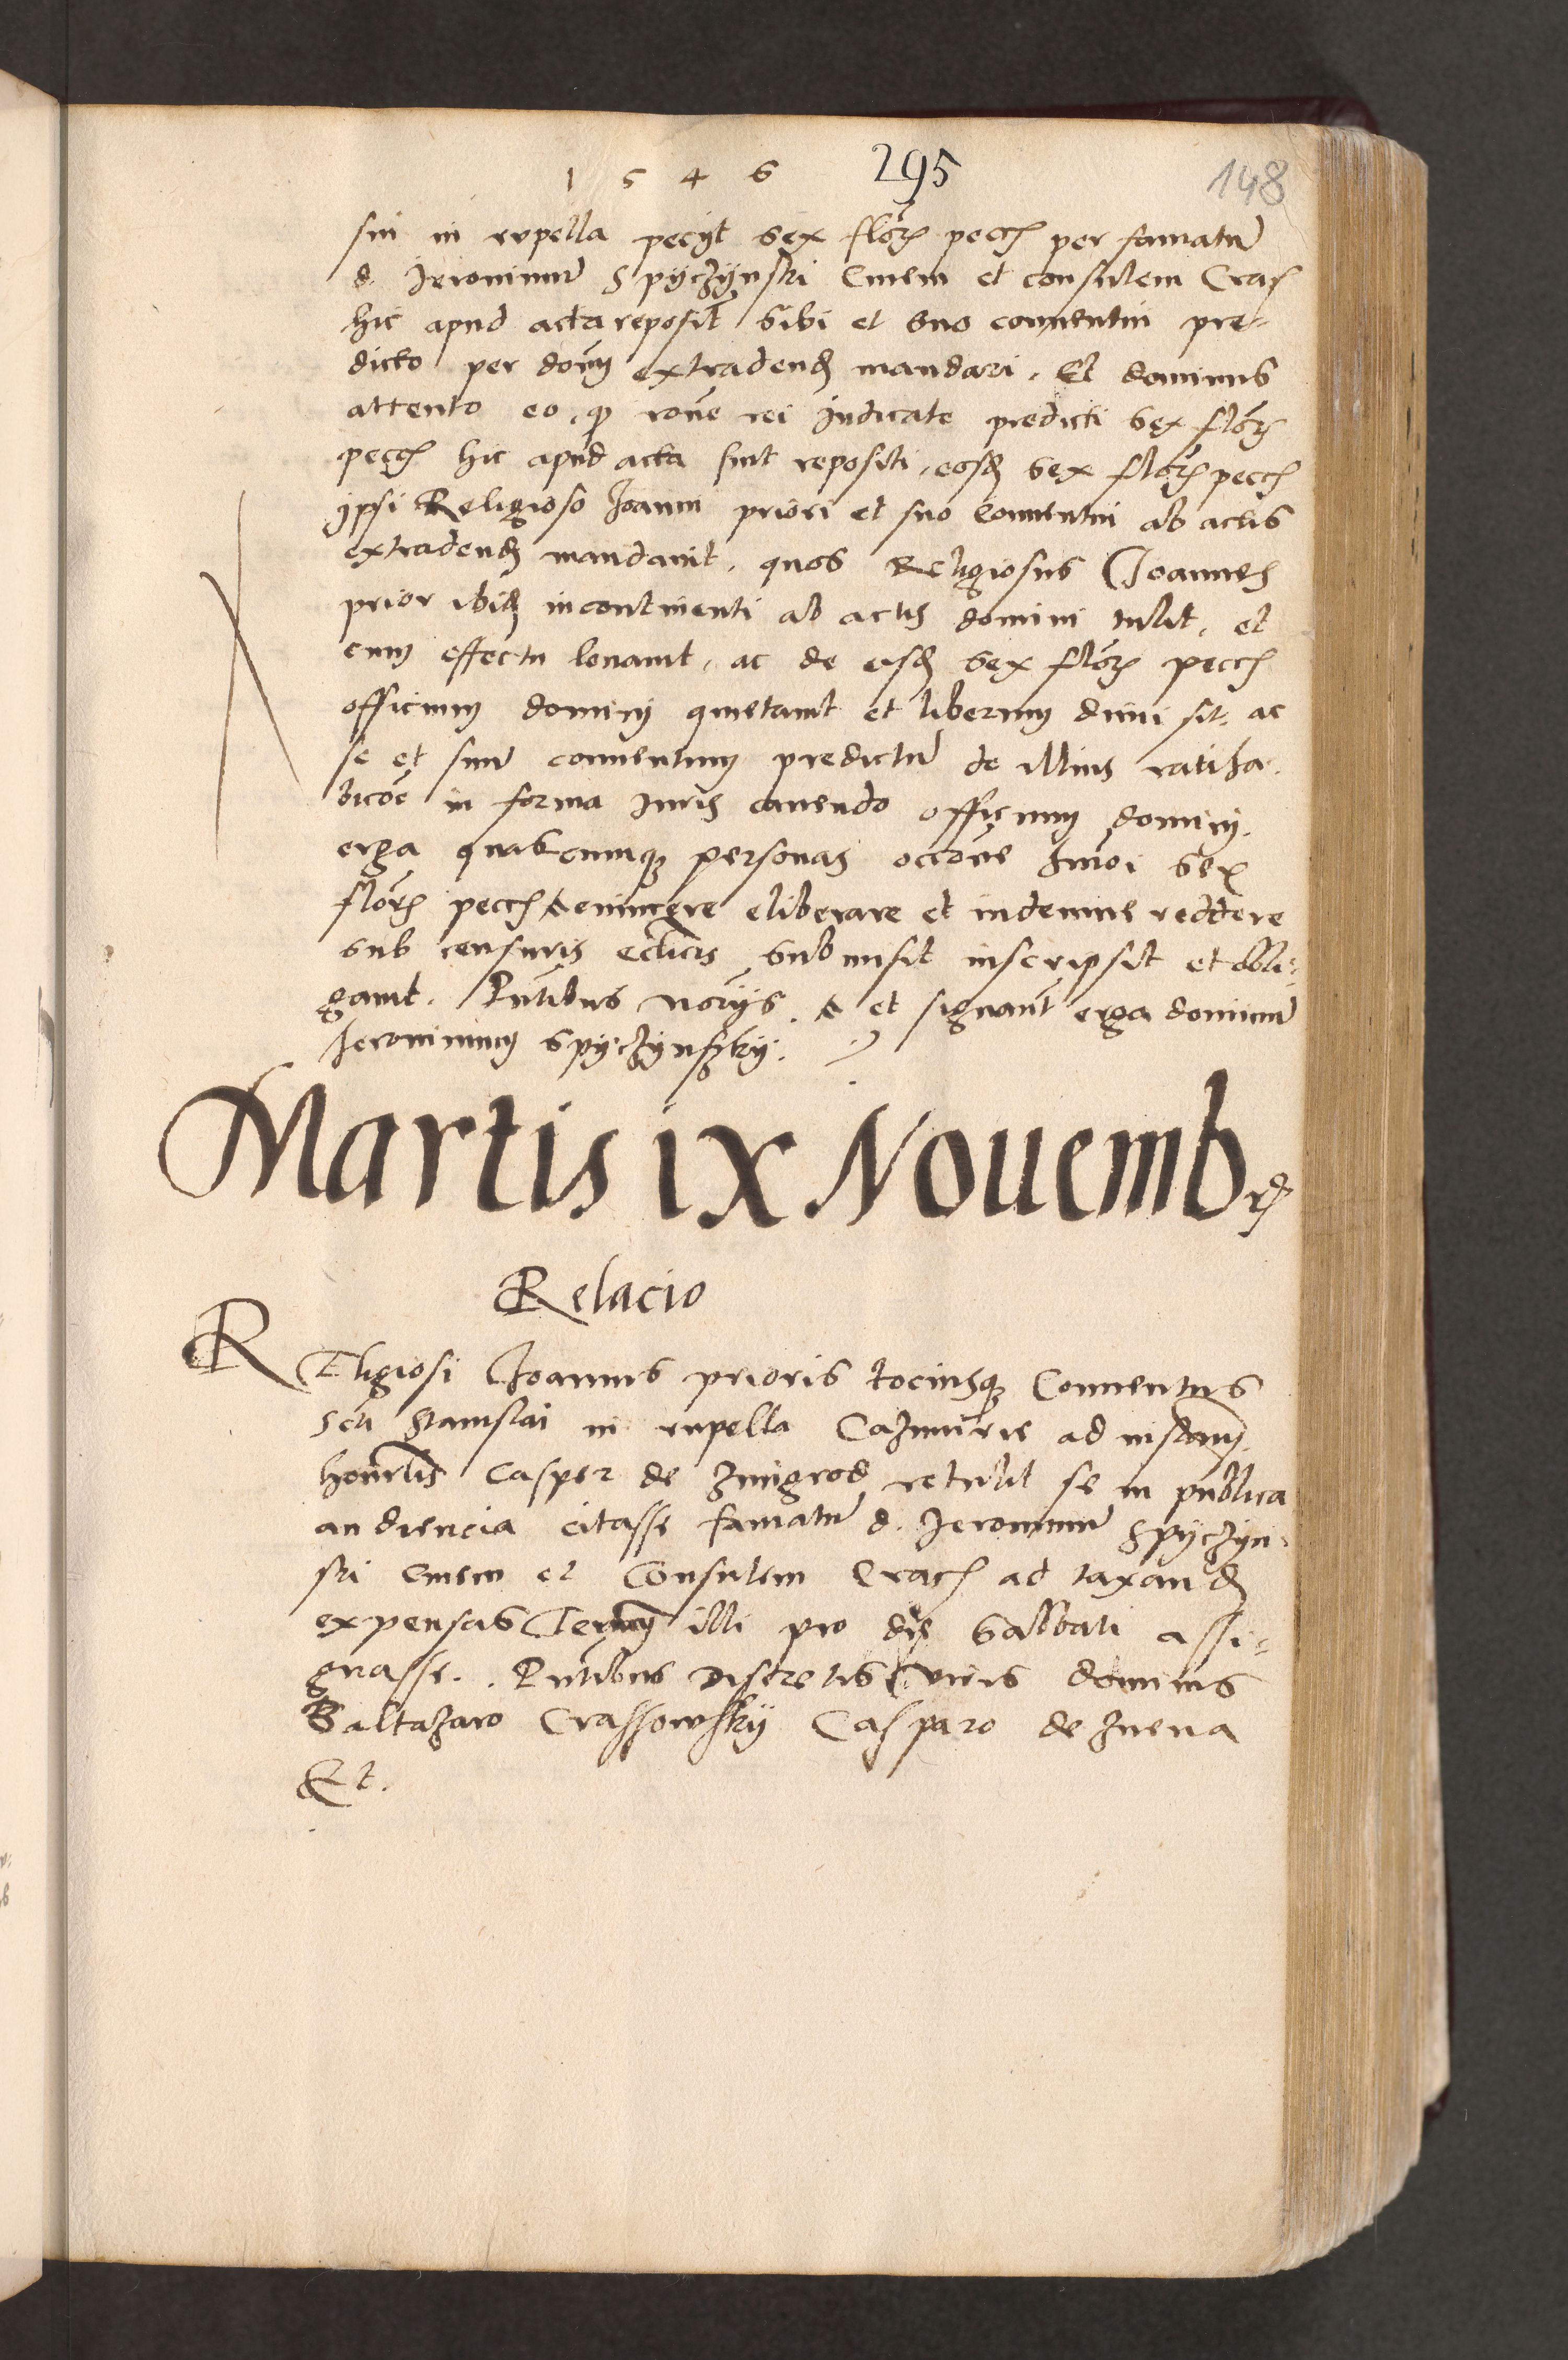 1 5 4 6 295 148
sui in rupella peciit sex florē pecc̄ per famatū
d. Jeronimū Spyczynski Ciuem et consulem Crac̄
hic apud acta reposit̄ sibi et suo conuentui pre-
dicto per dn̄m extradend̄ mandari. Et dominus
attento eo, qz rōne rei iudicate predicti sex florē
pecc̄ hic apud acta sint repositi, eosd̄ sex florē pecc̄
ipsi Religioso Joanni priori et suo Conuentui ab actis
extradend̄ mandauit. quos Religiosus Joannes
prior ibid̄ incontinenti ab actis domini tulit, et
cum effectu leuauit, ac de eisd̄ sex florē pecc̄
officium domini quietauit et liberum dimisit. ac
se et suū conuentum predictū de illius ratiha-
bicōe in forma Juris cauendo officium domini.
erga quascumqz personas occōne hmōi sex
florē pecc̄ euincere eliberare et indemne reddere
sub censuris ecclīcis submisit inscripsit et obli-
gauit. Pn̄tibus norijs. et signant̄ erga dominū
Jeronimum Spyczynszky.
Martis ix Nouembr̄
Relacio
REligiosi Joannis prioris tociusqz Conuentus
scti Stanislai in rupella Cazimirie ad instan̄
honorlis Casper de Zmigrod retulit se in publica
audiencia citasse famatū d. Jeronimū Spyczyn-
ski Ciuem et Consulem Crac̄ ad taxand̄
expensas Termī illi pro die Sabbati assi-
gnasse. Pn̄tibus Discretis viris dominis
Baltazaro Crassowsky Casparo de Znena
Et.